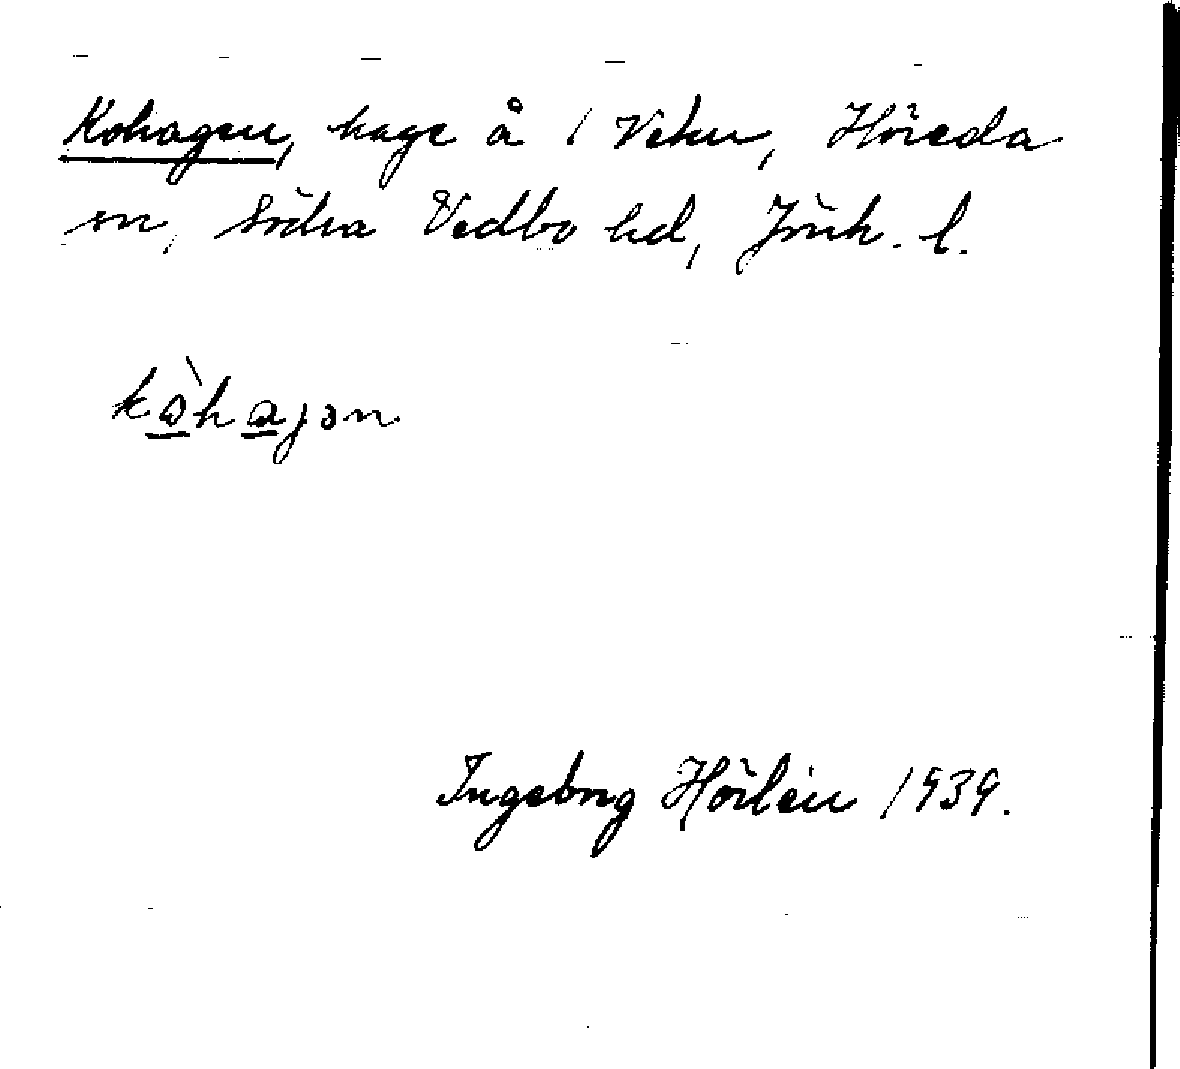 Kohagen, hage å 1 Veken, Höreda
sn, Södra Vedbo hd, Jönk. l.
kòhajən
Ingeborg Hörlén 1939.